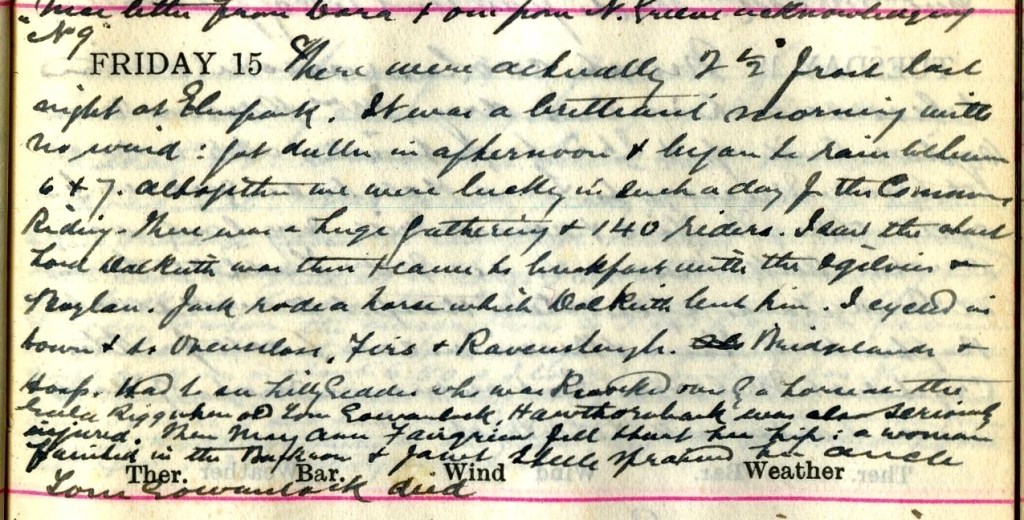 letter from Dora & one from N. Greeve acknowledging
"N9"
FRIDAY 15 There were actually 2½° frost last
night at Elmpark. It was a brilliant morning with
no wind: got duller in afternoon & began to rain between
6 & 7. Altogether we were lucky in such a day for the Common
Riding. There was a huge gathering & 140 riders. I saw the start
Lord Dalkeith was there & came to breakfast with the Ogilvies &
Jack rode a horse which Dalkeith lent him. I cycled in
town & to Firs & Ravensheugh. Bridgelands &
Hosp. Had to see Lilly Geddes who was knocked over by a horse at the
Rigg when old Tom Gowanlock, Hawthornbank was also seriously
injured. Then Mary Ann Fairgrieve fell & hurt her hip: a woman
fainted in the & Janet sprained her ancle
Ther. Bar. Wind Weather
Tom Gowanlock died